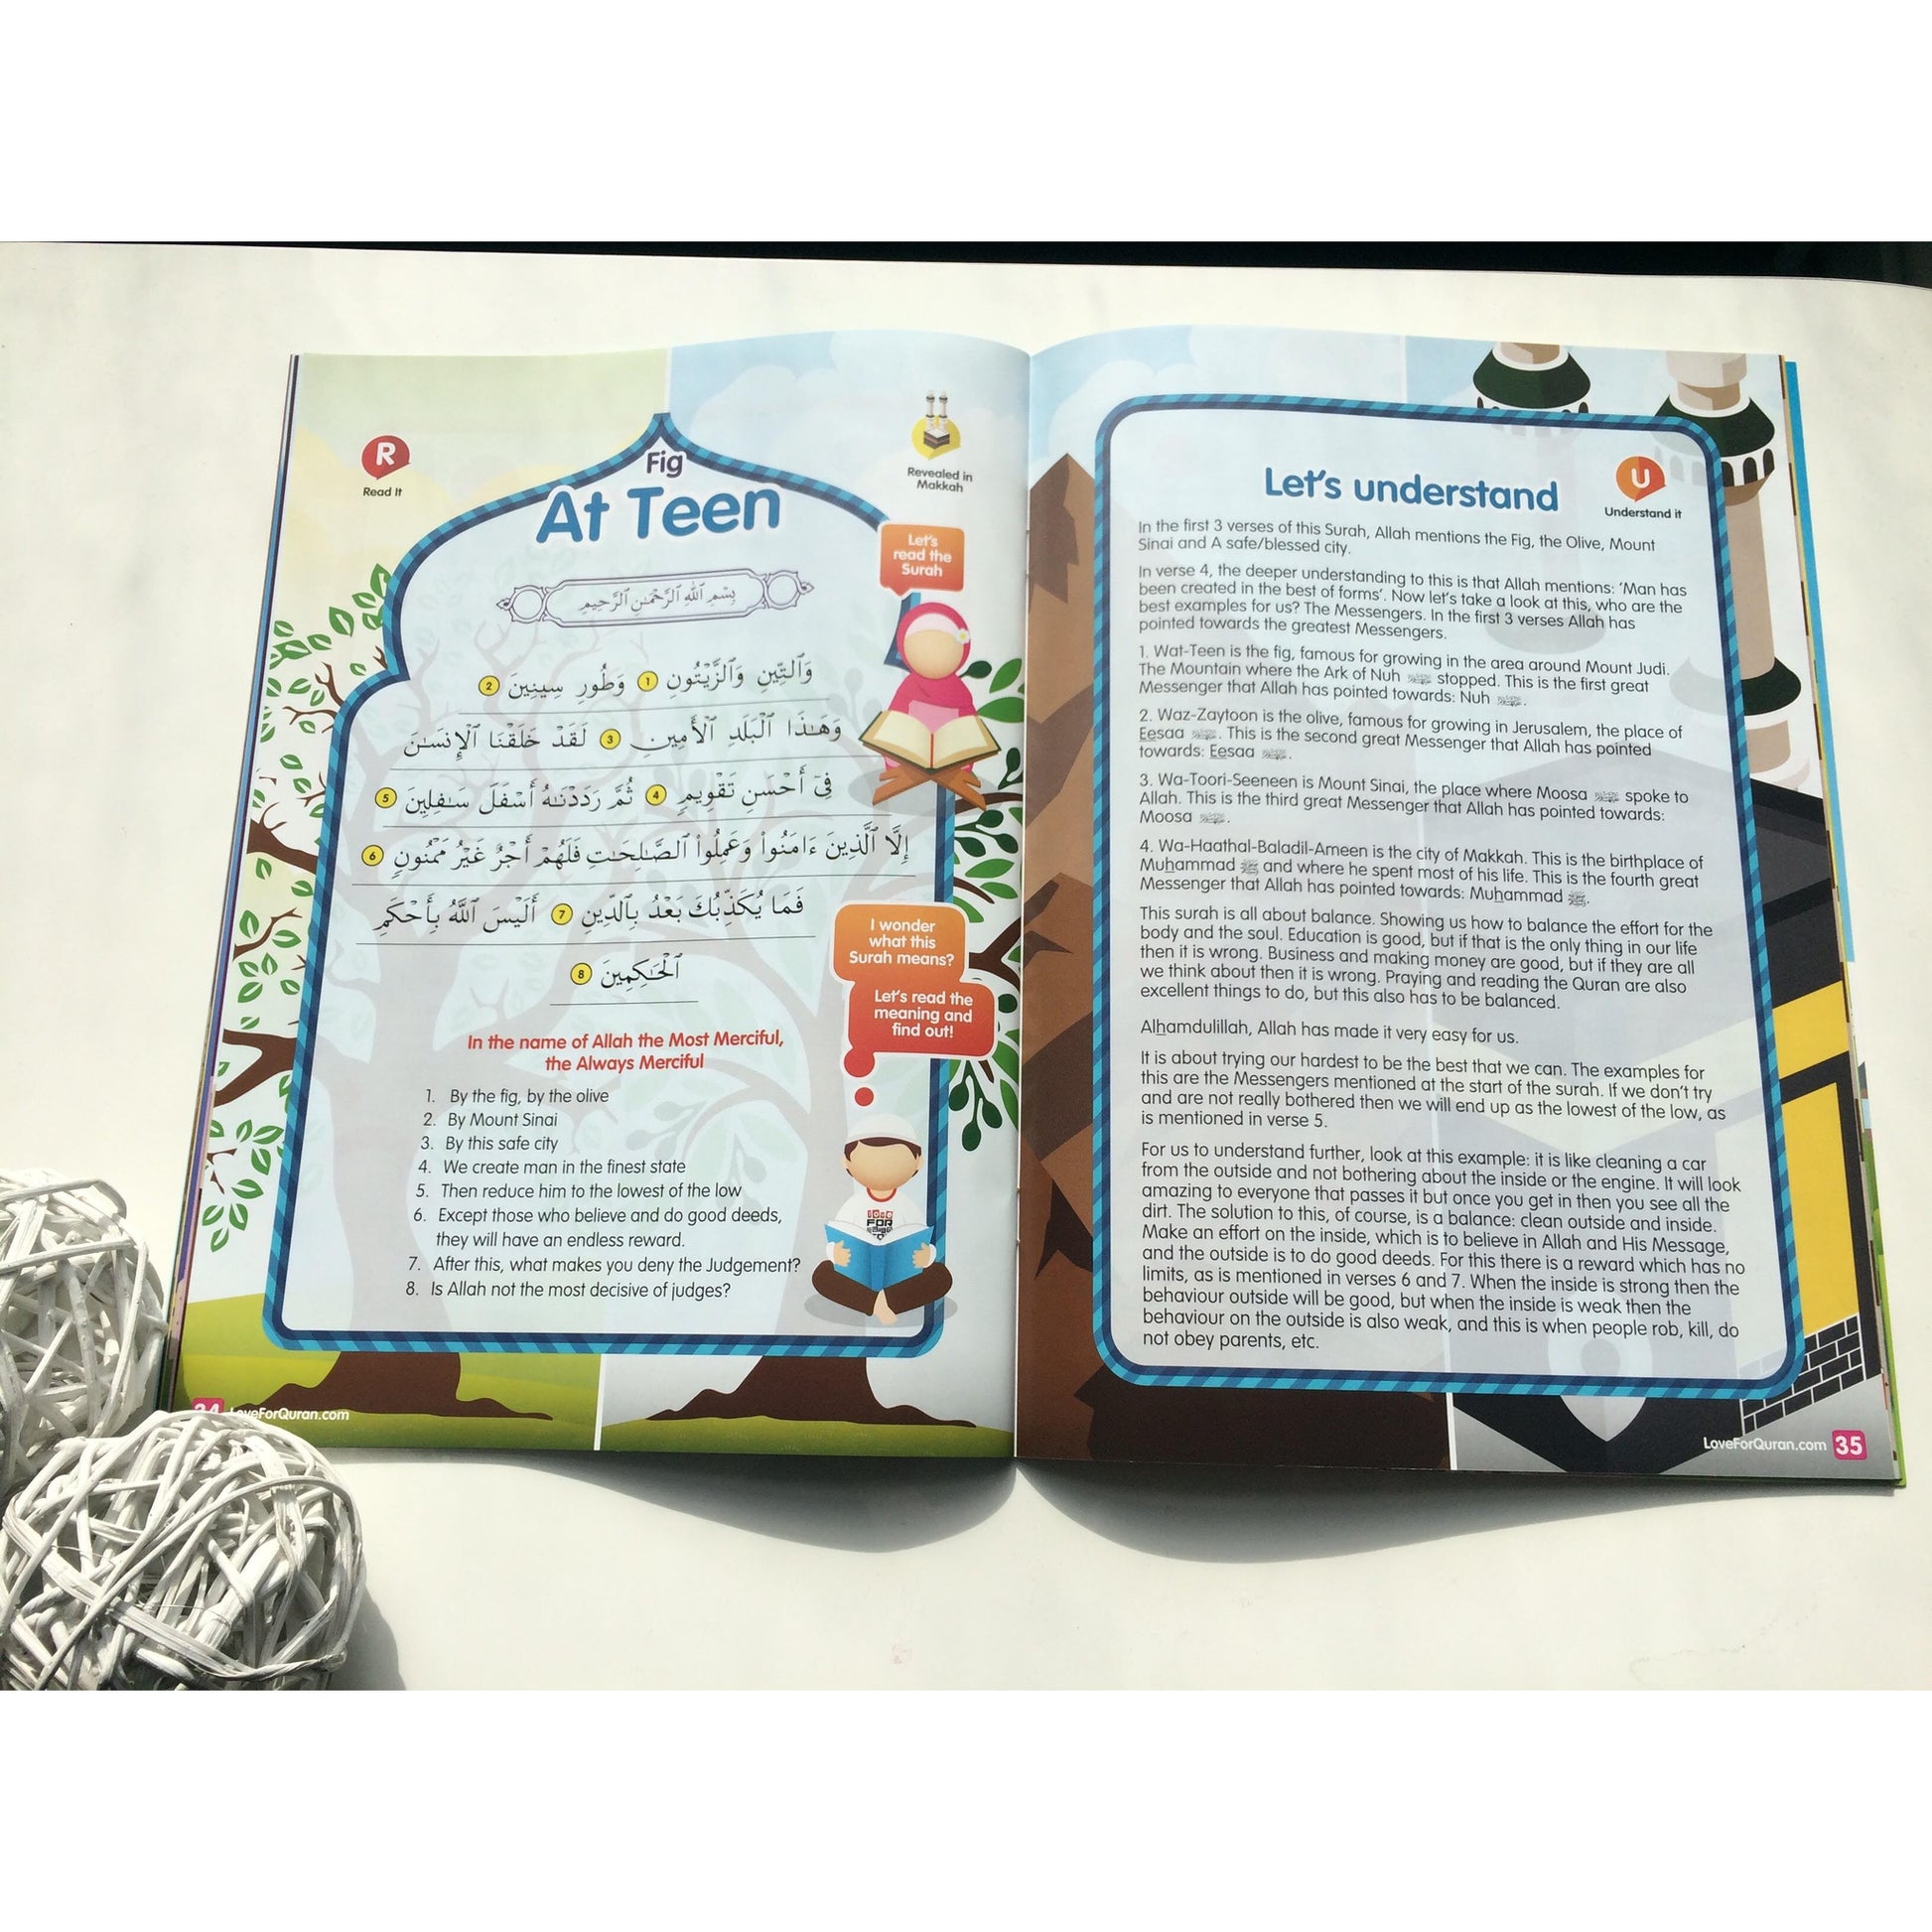 R
Read It
Fig
At Teen
Revealed in
Makkah
Let's
read the
Surah
بِسْمِ ٱللَّهِ ٱلرَّحْمَـٰنِ ٱلرَّحِيمِ
وَٱلتِّينِ وَٱلزَّيْتُونِ 1 وَطُورِ سِينِينَ 2
وَهَـٰذَا ٱلْبَلَدِ ٱلْأَمِينِ 3 لَقَدْ خَلَقْنَا ٱلْإِنسَـٰنَ
فِىٓ أَحْسَنِ تَقْوِيمٍ 4 ثُمَّ رَدَدْنَـٰهُ أَسْفَلَ سَـٰفِلِينَ 5
إِلَّا ٱلَّذِينَ ءَامَنُوا۟ وَعَمِلُوا۟ ٱلصَّـٰلِحَـٰتِ فَلَهُمْ أَجْرٌ غَيْرُ مَمْنُونٍ 6
فَمَا يُكَذِّبُكَ بَعْدُ بِٱلدِّينِ 7 أَلَيْسَ ٱللَّهُ بِأَحْكَمِ
ٱلْحَـٰكِمِينَ 8
I wonder
what this
Surah means?
Let's read the
meaning and
find out!
In the name of Allah the Most Merciful,
the Always Merciful
1. By the fig, by the olive
2. By Mount Sinai
3. By this safe city
4. We create man in the finest state
5. Then reduce him to the lowest of the low
6. Except those who believe and do good deeds,
they will have an endless reward.
7. After this, what makes you deny the Judgement?
8. Is Allah not the most decisive of judges?
34 LoveForQuran.com
Let's understand
U
Understand it
In the first 3 verses of this Surah, Allah mentions the Fig, the Olive, Mount
Sinai and A safe/blessed city.
In verse 4, the deeper understanding to this is that Allah mentions: 'Man has
been created in the best of forms'. Now let's take a look at this, who are the
best examples for us? The Messengers. In the first 3 verses Allah has
pointed towards the greatest Messengers.
1. Wat-Teen is the fig, famous for growing in the area around Mount Judi.
The Mountain where the Ark of Nuh stopped. This is the first great
Messenger that Allah has pointed towards: Nuh .
2. Waz-Zaytoon is the olive, famous for growing in Jerusalem, the place of
Eesaa . This is the second great Messenger that Allah has pointed
towards: Eesaa .
3. Wa-Toori-Seeneen is Mount Sinai, the place where Moosa spoke to
Allah. This is the third great Messenger that Allah has pointed towards:
Moosa .
4. Wa-Haathal-Baladil-Ameen is the city of Makkah. This is the birthplace of
Muhammad ﷺ and where he spent most of his life. This is the fourth great
Messenger that Allah has pointed towards: Muhammad ﷺ.
This surah is all about balance. Showing us how to balance the effort for the
body and the soul. Education is good, but if that is the only thing in our life
then it is wrong. Business and making money are good, but if they are all
we think about then it is wrong. Praying and reading the Quran are also
excellent things to do, but this also has to be balanced.
Alhamdulillah, Allah has made it very easy for us.
It is about trying our hardest to be the best that we can. The examples for
this are the Messengers mentioned at the start of the surah. If we don't try
and are not really bothered then we will end up as the lowest of the low, as
is mentioned in verse 5.
For us to understand further, look at this example: it is like cleaning a car
from the outside and not bothering about the inside or the engine. It will look
amazing to everyone that passes it but once you get in then you see all the
dirt. The solution to this, of course, is a balance: clean outside and inside.
Make an effort on the inside, which is to believe in Allah and His Message,
and the outside is to do good deeds. For this there is a reward which has no
limits, as is mentioned in verses 6 and 7. When the inside is strong then the
behaviour outside will be good, but when the inside is weak then the
behaviour on the outside is also weak, and this is when people rob, kill, do
not obey parents, etc.
LoveForQuran.com 35